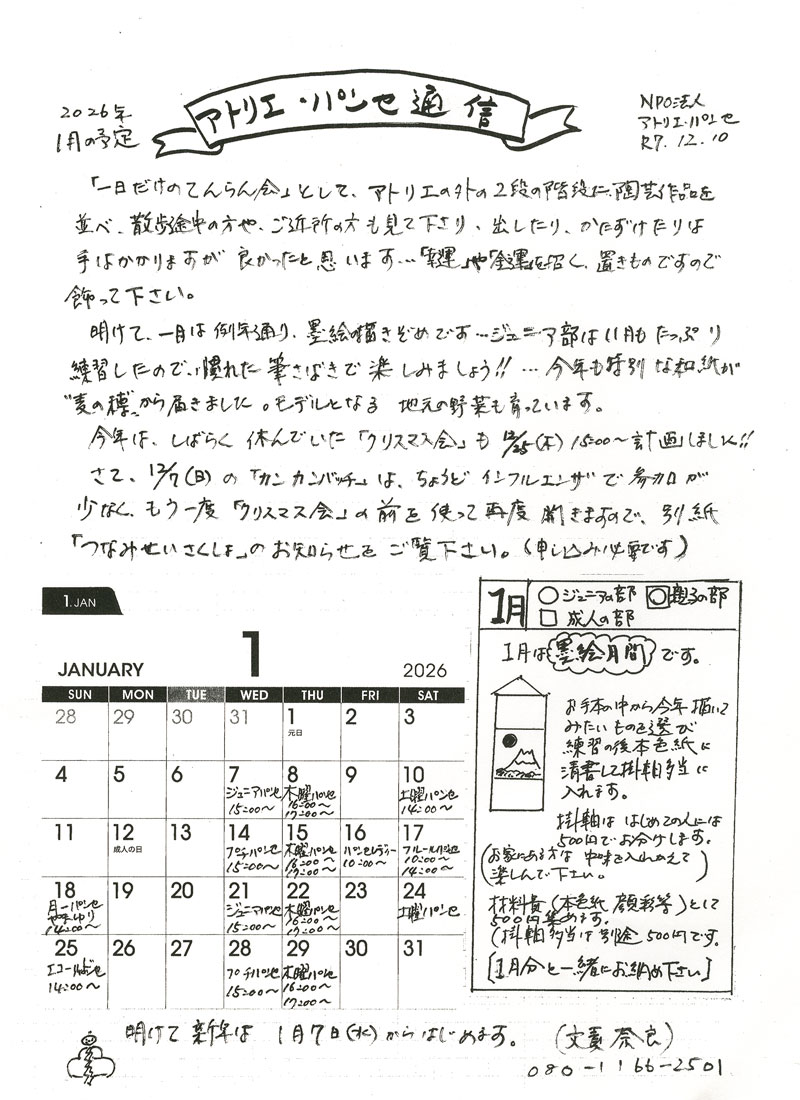 2026年
1月の予定
アトリエ・パンセ通信
NPO法人
アトリエ・パンセ
R7.12.10
「一日だけのてんらん会」として、アトリエの外の2段の階段に、陶芸作品を
並べ、散歩途中の方や、ご近所の方も見て下さり、出したり、かたずけたりは
手はかかりますが 良かったと思います…「幸運」や「金運」を招く、置きものですので
飾って下さい。
明けて、一月は例年通り、墨絵の描きぞめです…ジュニア部は11月もたっぷり
練習したので、慣れた筆さばきで楽しみましょう!! … 今年も特別な和紙が
"麦の穂"から届きました。モデルとなる 地元の野菜も育っています。
今年は、しばらく休んでいた「クリスマス会」も 12/25(木) 15:00〜計画しました!!
さて、12/7(日)の「カンカンバッチ」は、ちょうどインフルエンザで参加が
少なく、もう一度「クリスマス会」の前を使って再度開きますので、別紙
「つなみせいさくしょ」のお知らせをご覧下さい。(申し込み必要です)
1.JAN
1
JANUARY 2026
SUN MON TUE WED THU FRI SAT
28 29 30 31 1 2 3
元日
4 5 6 7 8 9 10
ジュニアパンセ 15:00〜
木曜パンセ 16:00〜 17:00〜
土曜パンセ 14:00〜
11 12 13 14 15 16 17
成人の日
プチパンセ 15:00〜
木曜パンセ 16:00〜 17:00〜
パンセレディー 10:00〜
フルールパンセ 10:00〜 14:00〜
18 19 20 21 22 23 24
月一パンセ やまゆり 14:00〜
ジュニアパンセ 15:00〜
木曜パンセ 16:00〜 17:00〜
土曜パンセ
25 26 27 28 29 30 31
エコールドパンセ 14:00〜
プチパンセ 15:00〜
木曜パンセ 16:00〜 17:00〜
1月
○ジュニアの部 ◎親子の部
□成人の部
1月は墨絵月間です。
お手本の中から今年描いて
みたいものを選び
練習の後本色紙に
清書して掛軸多当に
入れます。
掛軸ははじめての人には
500円でお分けします。
(お家にある方は 中味を入れかえて
楽しんで下さい。)
材料費(本色紙 顔彩等)として
500円集めます。
(掛軸多当は別途500円です。
[1月分と一緒にお納め下さい]
明けて新年は 1月7日(水)からはじめます。 (文責 奈良)
080-1166-2501